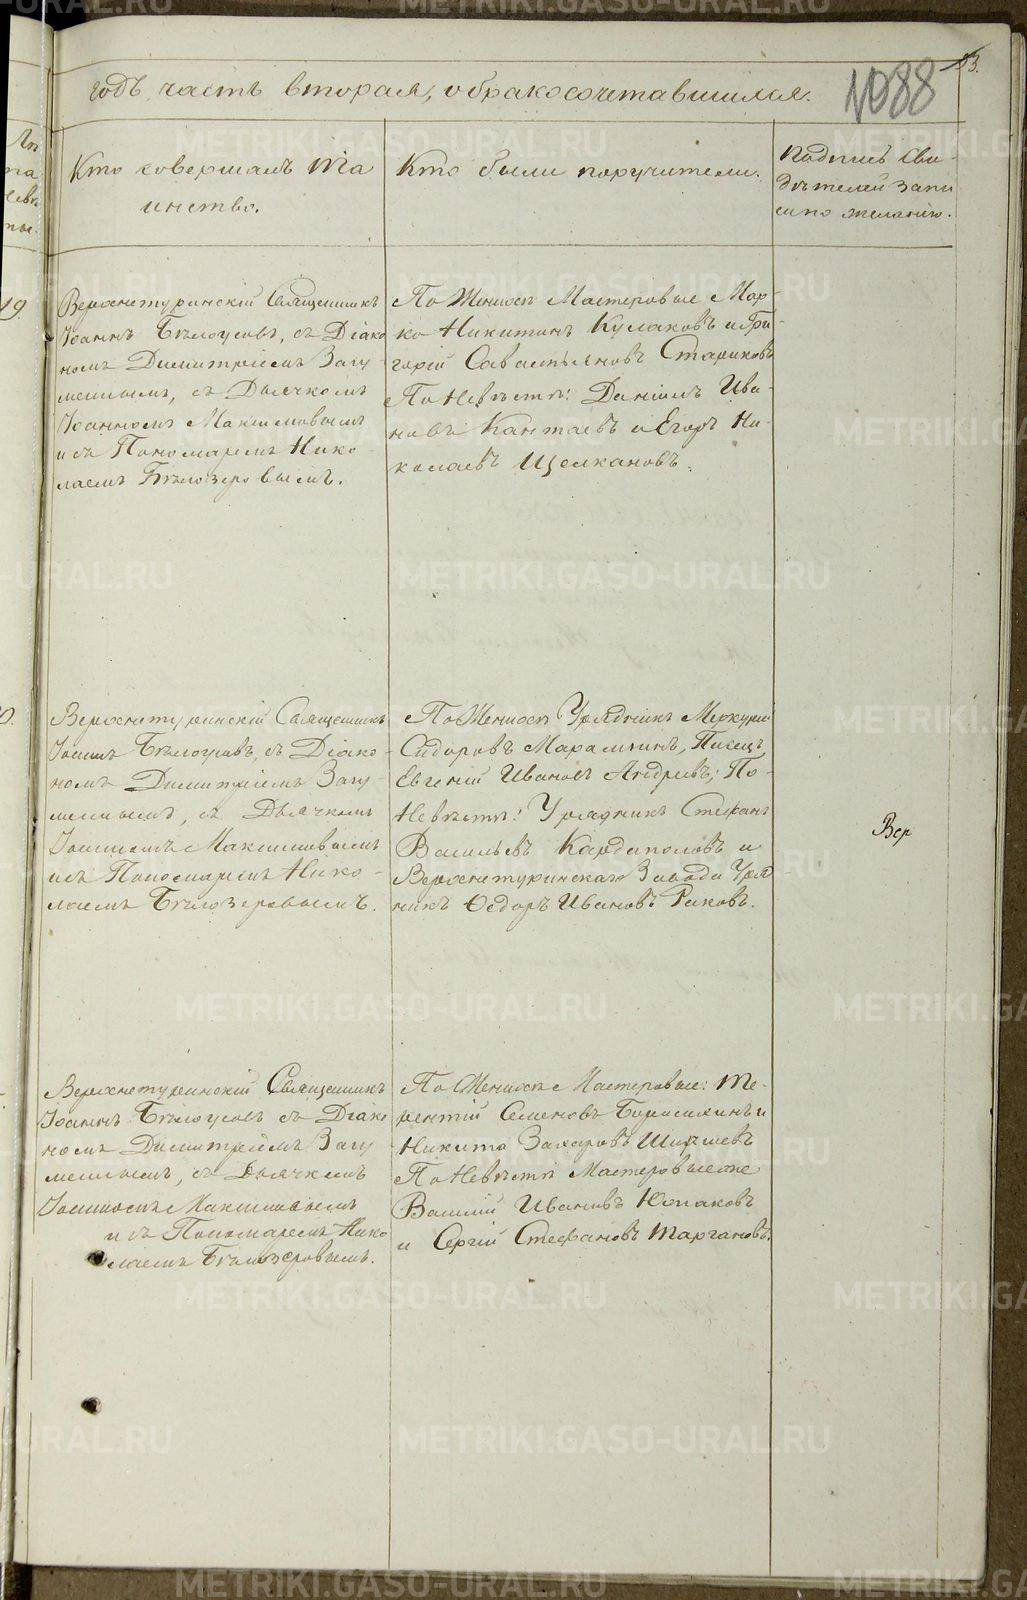 83.
1088
годъ, часть вторая, о бракосочетавшихся.
Кто совершалъ Таинство.
Кто были поручители.
Подпись Сви-
дѣтелей запи
си по желанію.
19.
Верхнетуринскій Священникъ
Іоаннъ Бѣлоусовъ, съ Діако
номъ Димитріемъ Загу
меннымъ, съ Дьячкомъ
Іоанномъ Максимовымъ
и съ Пономаремъ Нико
лаемъ Бѣлозеровымъ.
По Женихѣ Мастеровые Мар-
ко Никитинъ Кулаковъ и Гри-
горій Савастьяновъ Стариковъ
По Невѣстѣ: Даніилъ Ива-
новъ Кантаевъ и Егоръ Ни-
колаевъ Щелкановъ.
Верхнетуринскій Священникъ
Іоаннъ Бѣлоусовъ, съ Діако-
номъ Димитріемъ Загу-
меннымъ, съ Дьячкомъ
Іоанномъ Максимовымъ
и съ Пономаремъ Нико-
лаемъ Бѣлозеровымъ.
По Женихѣ Урядникъ Меркурій
Сидоровъ Марамзинъ, Писецъ
Евгеній Ивановъ Андреевъ; По-
Невѣстѣ: Урядникъ Стефанъ
Васильевъ Кардаполовъ и
Верхнетуринскаго Завода Уряд-
никъ Ѳедоръ Ивановъ Раковъ.
Вер
Верхнетуринскій Священникъ
Іоаннъ Бѣлоусовъ съ Діако
номъ Димитріемъ Загу
меннымъ, съ Дьячкомъ
Іоанномъ Максимовымъ
и съ Пономаремъ Нико
лаемъ Бѣлозеровымъ.
По Женихѣ Мастеровые: Те-
рентій Семеновъ и
Никита Захаровъ
По Невѣстѣ Мастеровые же
Василій Ивановъ Юмаковъ
и Сергій Стефановъ Таргановъ.
METRIKI.GASO-URAL.RU